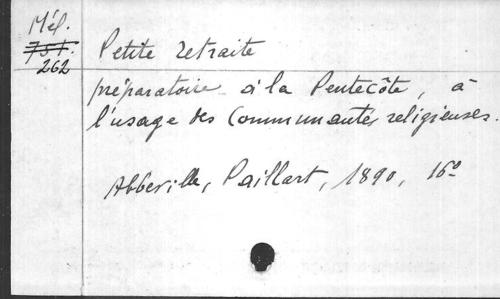 Mél.
751.
262
Petite retraite
préparatoire à la Pentecôte, à
l'usage des Communautés religieuses.
Abbeville, Paillart, 1890, 16°